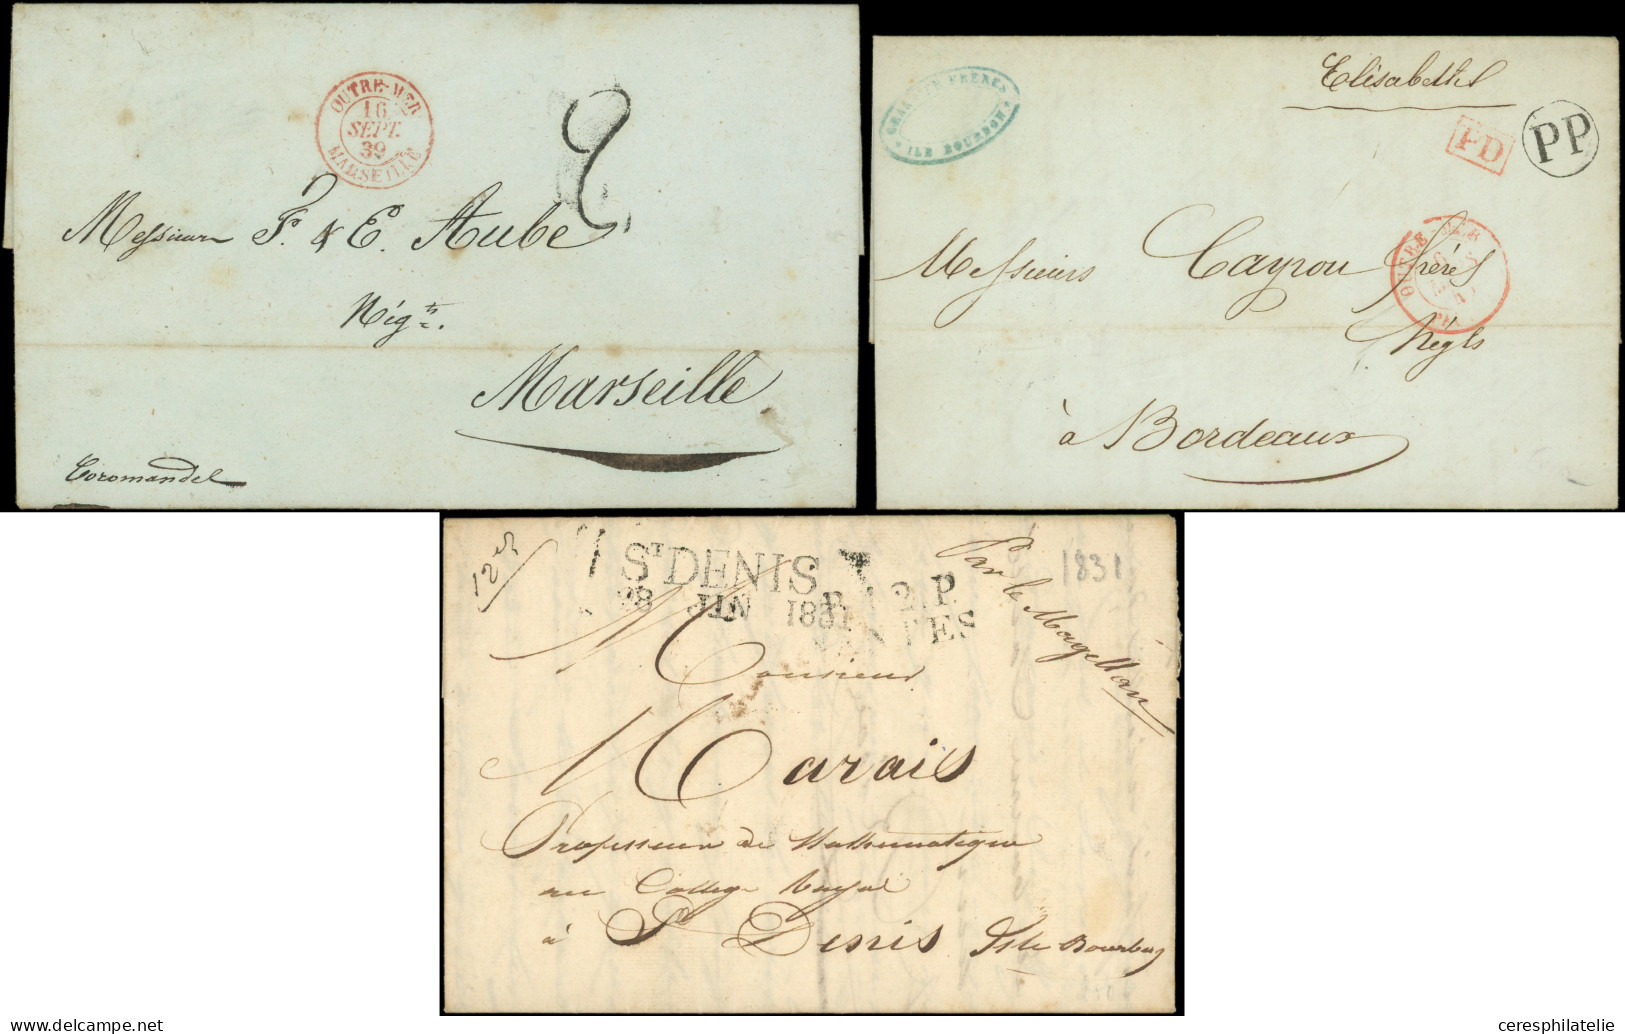 OUTRE-MER
16
SEPT.
39
MARSEILLE
2
Messieurs F. & E. Aube
Nég.ts
Marseille
Coromandel
FRÈRES
ILE BOURBON
Elisabeth
PD
PP
OUTRE-MER
Messieurs Cayrou frères
Négts
à Bordeaux
12
ST DENIS
28 JUIN 1831
P. P.
NTES
Par le Magellan
1831
Monsieur
Marais
Professeur de Mathématique
au College Royal
à St Denis Isle Bourbon
delcampe.net
ceresphilatelie